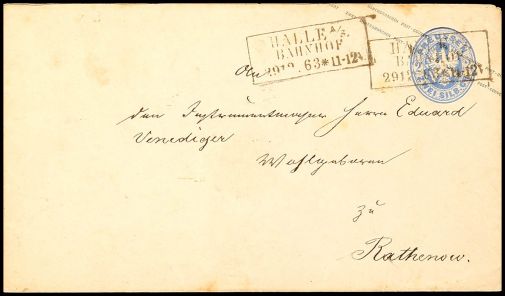 HALLE A/S.
BAHNHOF
29 12. 63 * 11-12V
HA
BA
29 12 63 * 11-12V
PREUSSEN
ZWEI SILB.GR.
An
den Instrumentmacher Herrn Eduard
Venediger
Wohlgeboren
zu
Rathenow.